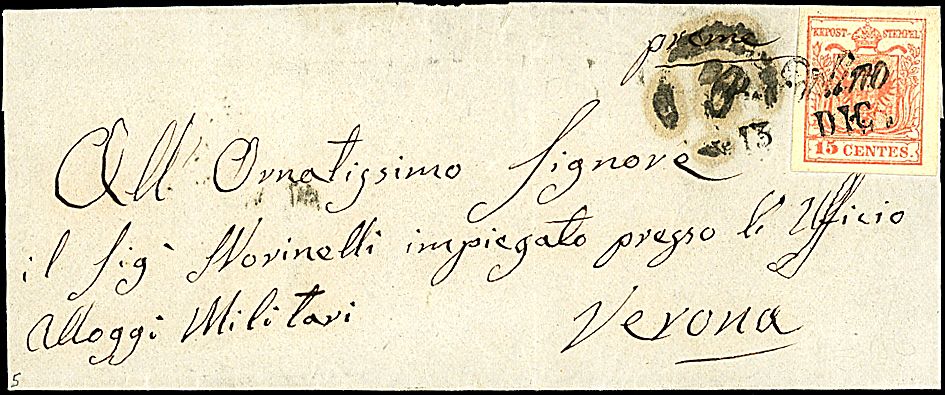 preme
KKPOST-STEMPEL
DIC
13
15 CENTES.
All Ornatissimo Signore
il Sig Morinelli impiegato presso l'Ufficio
Alloggi Militari
Verona
5